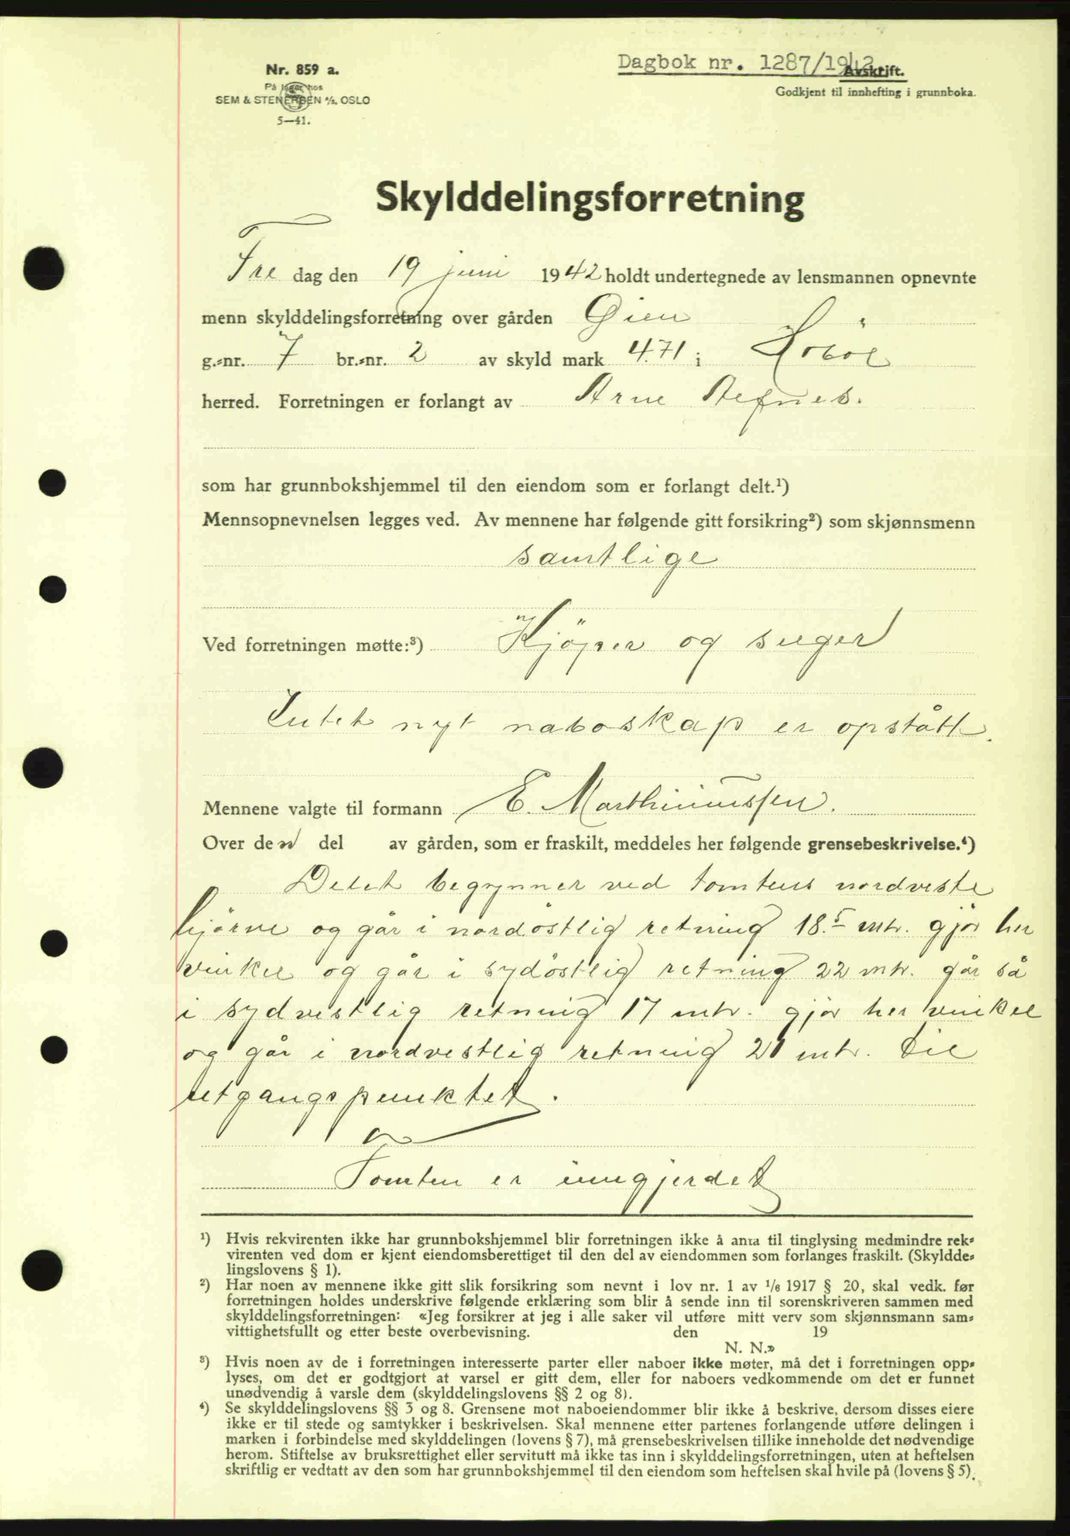 Nr. 859 a.
På lager hos
SEM & STENERSEN A/S. OSLO
5—41.
Dagbok nr. 1287/1942
Avskrift.
Godkjent til innhefting i grunnboka.
Skylddelingsforretning
Fre dag den 19 juni 1942 holdt undertegnede av lensmannen opnevnte
menn skylddelingsforretning over gården Øien
g.-nr. 7 br.-nr. 2 av skyld mark 4.71 i Hobøl
herred. Forretningen er forlangt av Arne
som har grunnbokshjemmel til den eiendom som er forlangt delt.¹)
Mennsopnevnelsen legges ved. Av mennene har følgende gitt forsikring²) som skjønnsmenn
samtlige
Ved forretningen møtte:³) Kjöper og selger
Intet nyt naboskap er opstått.
Mennene valgte til formann E. Marthiniussen.
Over den del av gården, som er fraskilt, meddeles her følgende grensebeskrivelse.⁴)
Delet begynner ved tomtens nordveste
hjörne og går i nordöstlig retning 18.5 mtr. gjör her
vinkel og går i sydöstlig retning 22 mtr. går så
i sydvestlig retning 17 mtr. gjör her vinkel
og går i nordvestlig retning 21 mtr. til
utgangspunktet.
Tomten er inngjerdet
¹) Hvis rekvirenten ikke har grunnbokshjemmel blir forretningen ikke å anta til tinglysing medmindre rek-
virenten ved dom er kjent eiendomsberettiget til den del av eiendommen som forlanges fraskilt. (Skyldde-
lingslovens § 1).
²) Har noen av mennene ikke gitt slik forsikring som nevnt i lov nr. 1 av 1/6 1917 § 20, skal vedk. før
forretningen holdes underskrive følgende erklæring som blir å sende inn til sorenskriveren sammen med
skylddelingsforretningen: «Jeg forsikrer at jeg i alle saker vil utføre mitt verv som skjønnsmann sam-
vittighetsfullt og etter beste overbevisning. den 19
N. N.»
³) Hvis noen av de i forretningen interesserte parter eller naboer ikke møter, må det i forretningen opp-
lyses, om det er godtgjort at varsel er gitt dem, eller for naboers vedkommende om det er funnet
unødvendig å varsle dem (skylddelingslovens §§ 2 og 8).
⁴) Se skylddelingslovens §§ 3 og 8. Grensene mot naboeiendommer blir ikke å beskrive, dersom disses eiere
ikke er til stede og samtykker i beskrivelsen. Skal mennene etter partenes forlangende utføre delingen i
marken i forbindelse med skylddelingen (lovens § 7), må grensebeskrivelsen tillike inneholde det nødvendige
herom. Stiftelse av bruksrettighet eller servitutt må ikke tas inn i skylddelingsforretningen, uten at heftelsen
skriftlig er vedtatt av den som har grunnbokshjemmel til den eiendom som heftelsen skal hvile på (lovens § 5).